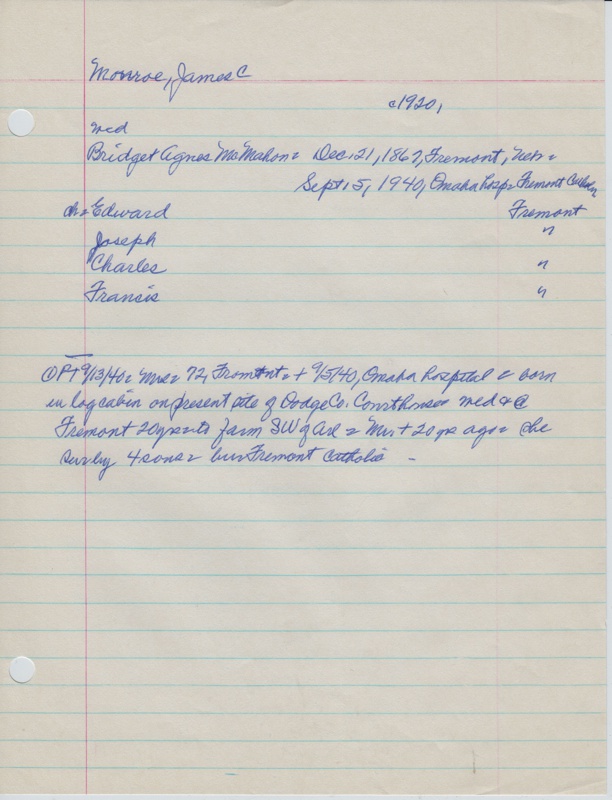 Monroe, James C
c1920,
med
Bridget Agnes McMahon = Dec. 21, 1867, Fremont, Neb =
Sept. 5, 1940, Omaha hosp = Fremont
ch = Edward Fremont
Joseph "
Charles "
Francis "
9/13/40 = Mrs = 72, Fremont = + 9/5/40, Omaha hospital = born
in log cabin on present site of Dodge Co. Courthouse = med + @
Fremont 20 yrs = to farm SW of = Mr + 20 yrs ago = she
sur by 4 sons = bur Fremont Catholic -